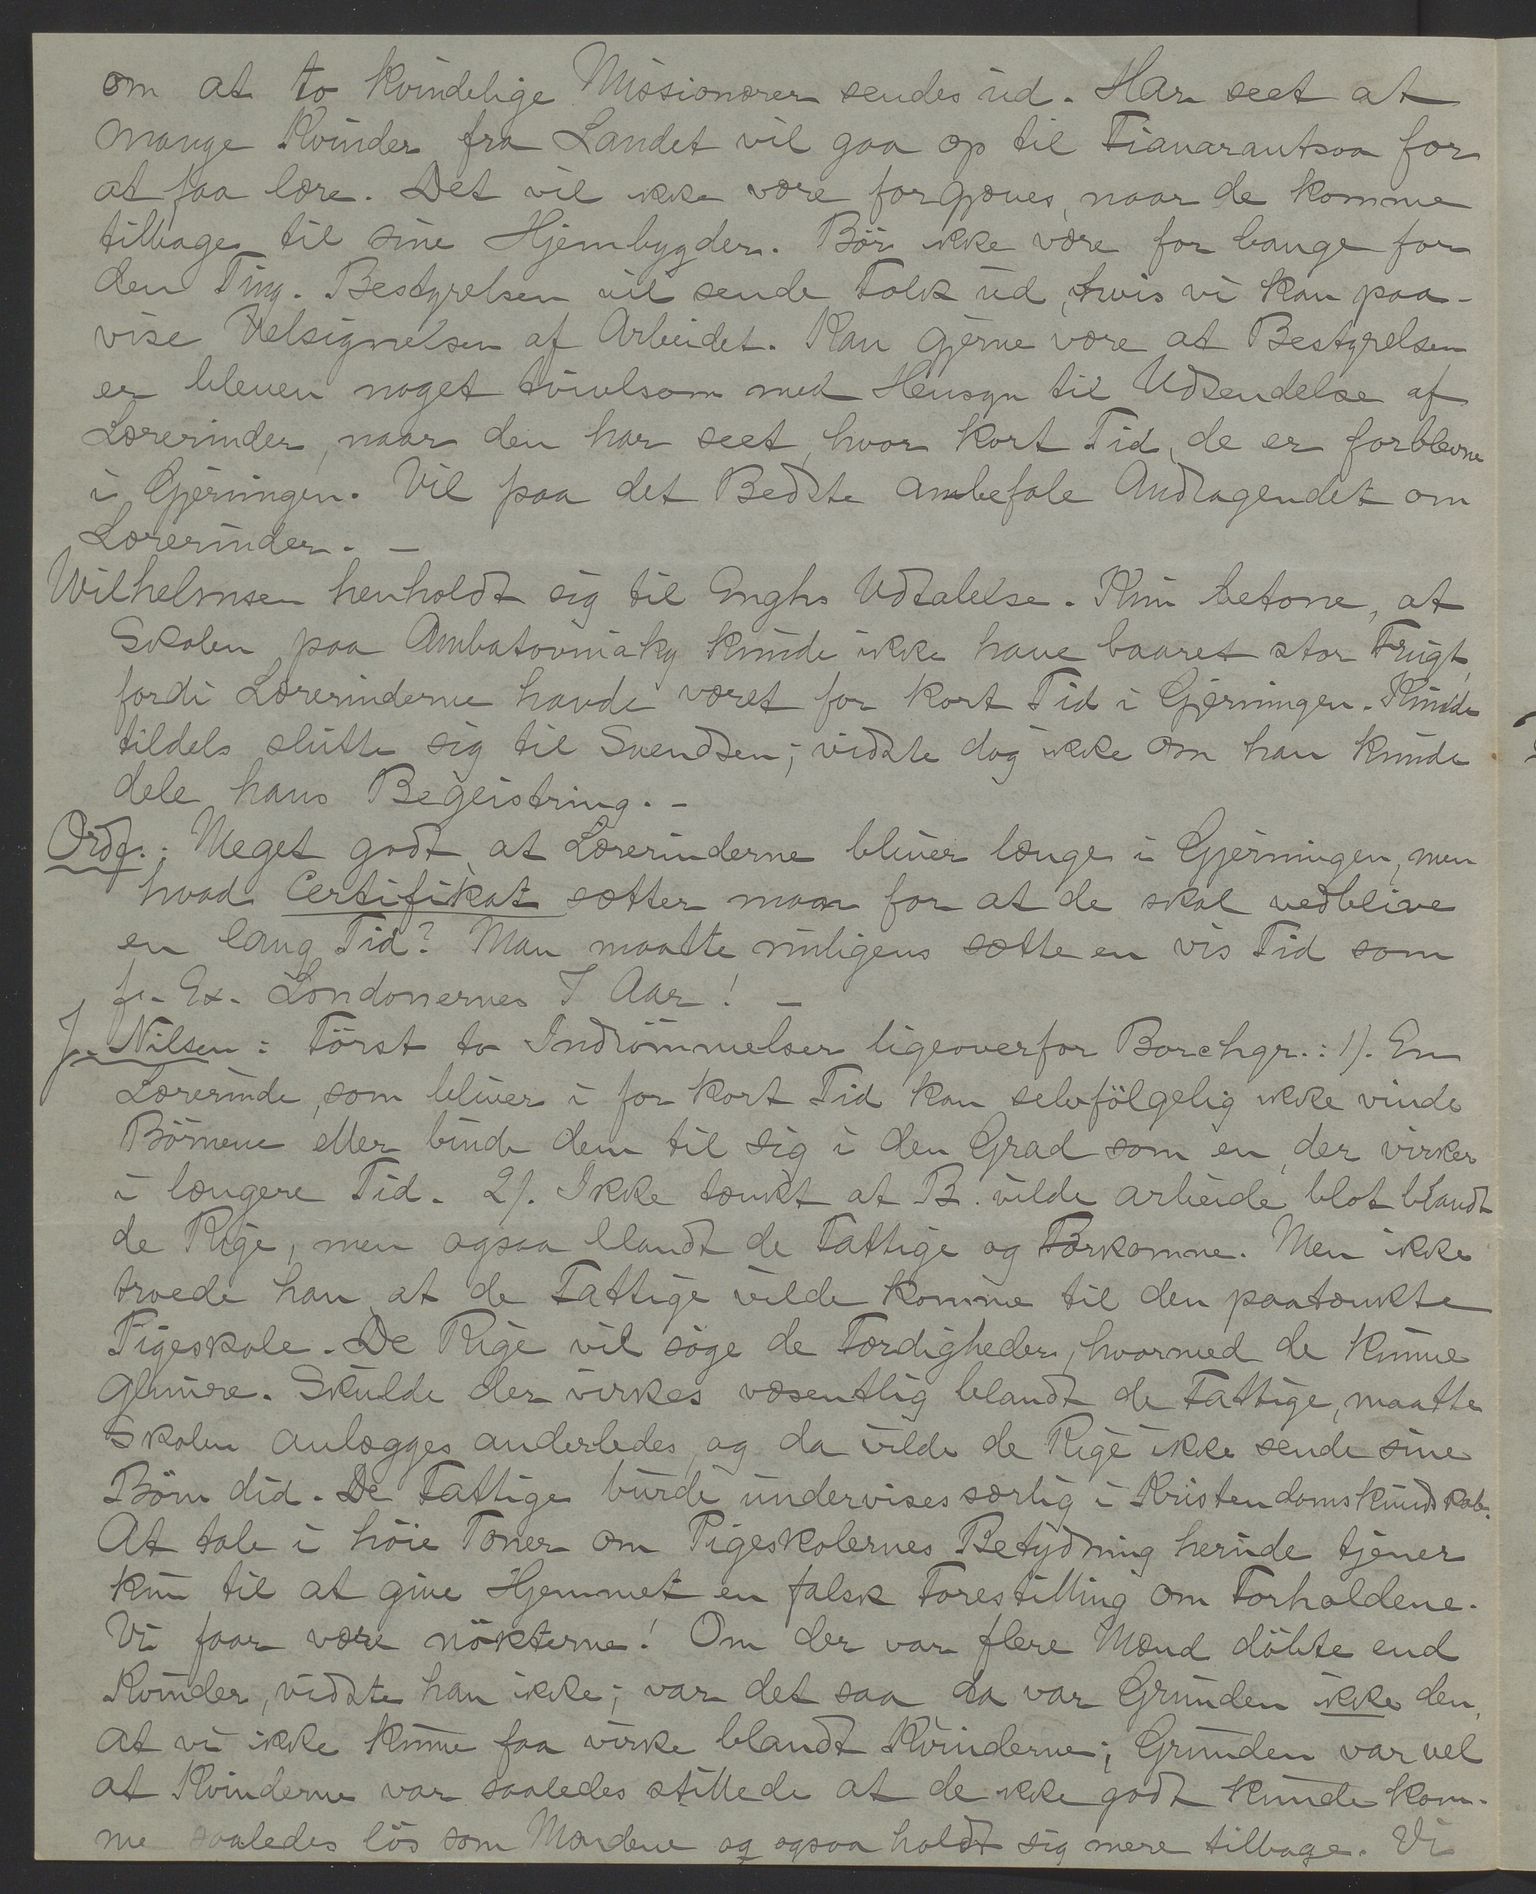 om at to kvindelige Missionærer sendes ud. Har seet at
mange Kvinder fra Landet vil gaa op til Fianarantsoa for
at faa lære. Det vil ikke være forgjæves, naar de komme
tilbage til sine Hjembygder. Bör ikke være for bange for
den Ting. Bestyrelsen vil sende Folk ud, hvis vi kan paa-
vise Velsignelsen af Arbeidet. Kan gjerne være at Bestyrelsen
er bleven noget tvivlsom med Hensyn til Udsendelse af
Lærerinder, naar den har seet, hvor kort Tid, de er forblevne
i Gjerningen. Vil paa det Bedste anbefale Andragendet om
Lærerinder. —
Wilhelmsen henholdt sig til Enghs Udtalelse. Kun betone, at
Skolen paa Ambatovinaky kunde ikke have baaret stor Frugt,
fordi Lærerinderne havde været for kort Tid i Gjerningen. Kunde
tildels slutte sig til Svendsen; vidste dog ikke om han kunde
dele hans Begeistring. -
Ordf.: Meget godt, at Lærerinderne bliver længe i Gjerningen, men
hvad Certifikat sætter man for at de skal vedblive
en lang Tid? Man maatte rimligens sætte en vis Tid som
f. Ex. Londonernes 7 Aar! —
J. Nilsen: Först to Indrömmelser ligeoverfor Borchgr.: 1). En
Lærerinde, som bliver i for kort Tid kan selvfölgelig ikke vinde
Börnene eller binde dem til sig i den Grad som en, der virker
i længere Tid. 2). Ikke tænkt at B. vilde arbeide blot blandt
de Rige, men ogsaa blandt de Fattige og Forkomne. Men ikke
troede han, at de Fattige vilde komme til den paatænkte
Pigeskole. De Rige vil söge de Færdigheder, hvormed de kunne
glimre. Skulde der virkes væsentlig blandt de Fattige, maatte
Skolen anlægges anderledes, og da vilde de Rige ikke sende sine
Börn did. De Fattige burde undervises særlig i Kristendomskundskab.
At tale i höie Toner om Pigeskolernes Betydning herinde tjener
kun til at give Hjemmet en falsk Forestilling om Forholdene.
Vi faar være nökterne! Om der var flere Mænd döbte end
Kvinder, vidste han ikke; var det saa da var Grunden ikke den,
at vi ikke kunne faa virke blandt Kvinderne; Grunden var vel
at Kvinderne var saaledes stillede at de ikke godt kunde kom-
me saaledes lös som Mændene og ogsaa holdt sig mere tilbage. Vi